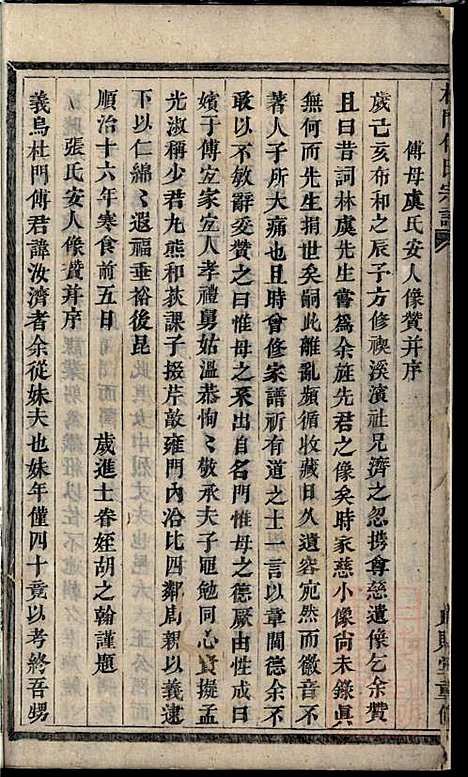 傅母虞氏安人像贊并序
歲己亥布和之辰子方修禊溪濱社兄濟之忽攜會慈遺像乞余贊
且曰昔詞林虞先生嘗爲余旌先君之像矣時家慈小像尙未錄眞
無何而先生捐世矣嗣此離亂頻循收藏日久遺容宛然而徽音不
著人子所大痛也且時曾修家譜祈有道之士一言以章閫德余不
敢以不敏辭爰贊之曰惟母之系出自名門惟母之德厥由性成以
嬪于傅宜家宜人孝禮舅姑溫恭恂〻敬承夫子黽勉同心賢擬孟
光淑稱少君九熊和荻課子掇芹敵雍門內洽比四鄰馬親以義逮
下以仁綿〻遐福垂裕後昆
順治十六年寒食前五日
歲進士眷姪胡之翰謹題
張氏安人像贊并序
義烏杜門傅君諱汝濟者余從妹夫也妹年僅四十竟以考終吾甥
門傅氏宗譜